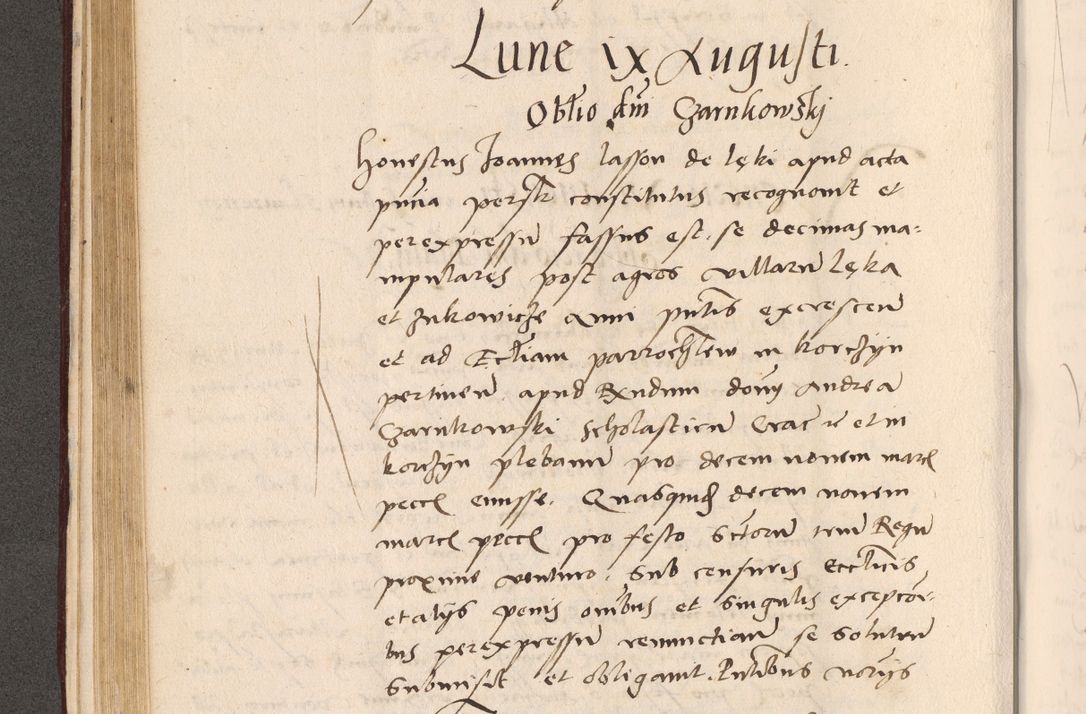 Lune ix Augusti.
Obl̄io dn̄i Czarnkowskj
Honestus Joannes lasson de lęki apud acta
pn̄cia persl̄r constitutus recognouit et
per expressū fassus est. se decimas ma-
nipulares post agros villarū lęka
et Jnkowicze anni pn̄tis excrescen̄
et ad Eccl̄iam parrochl̄em in korczijn
pertinen̄ apud Rxndum dom̄ Andreā
Czarnkowskj Scholasticū Crac̄ et in
korczijn plebanū pro decem nouem marc
pecc emisse. Quasquid decem nouem
marc pecc pro festo Sctorū triū Regū
proxime venturo. Sub censuris Eccl̄icis
et alijs penis om̄ibus et singulis exception̄i-
bus per expressū renunctian̄ se soluturū
submisit et obligauit. Pn̄tibus notrijs